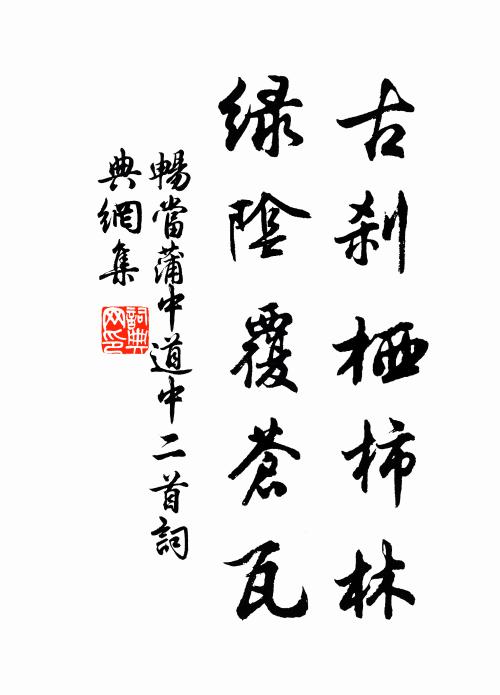 古刹栖柿林
緑陰覆蒼瓦
暢當蒲中道中二首詞
典網集
詞典
网印